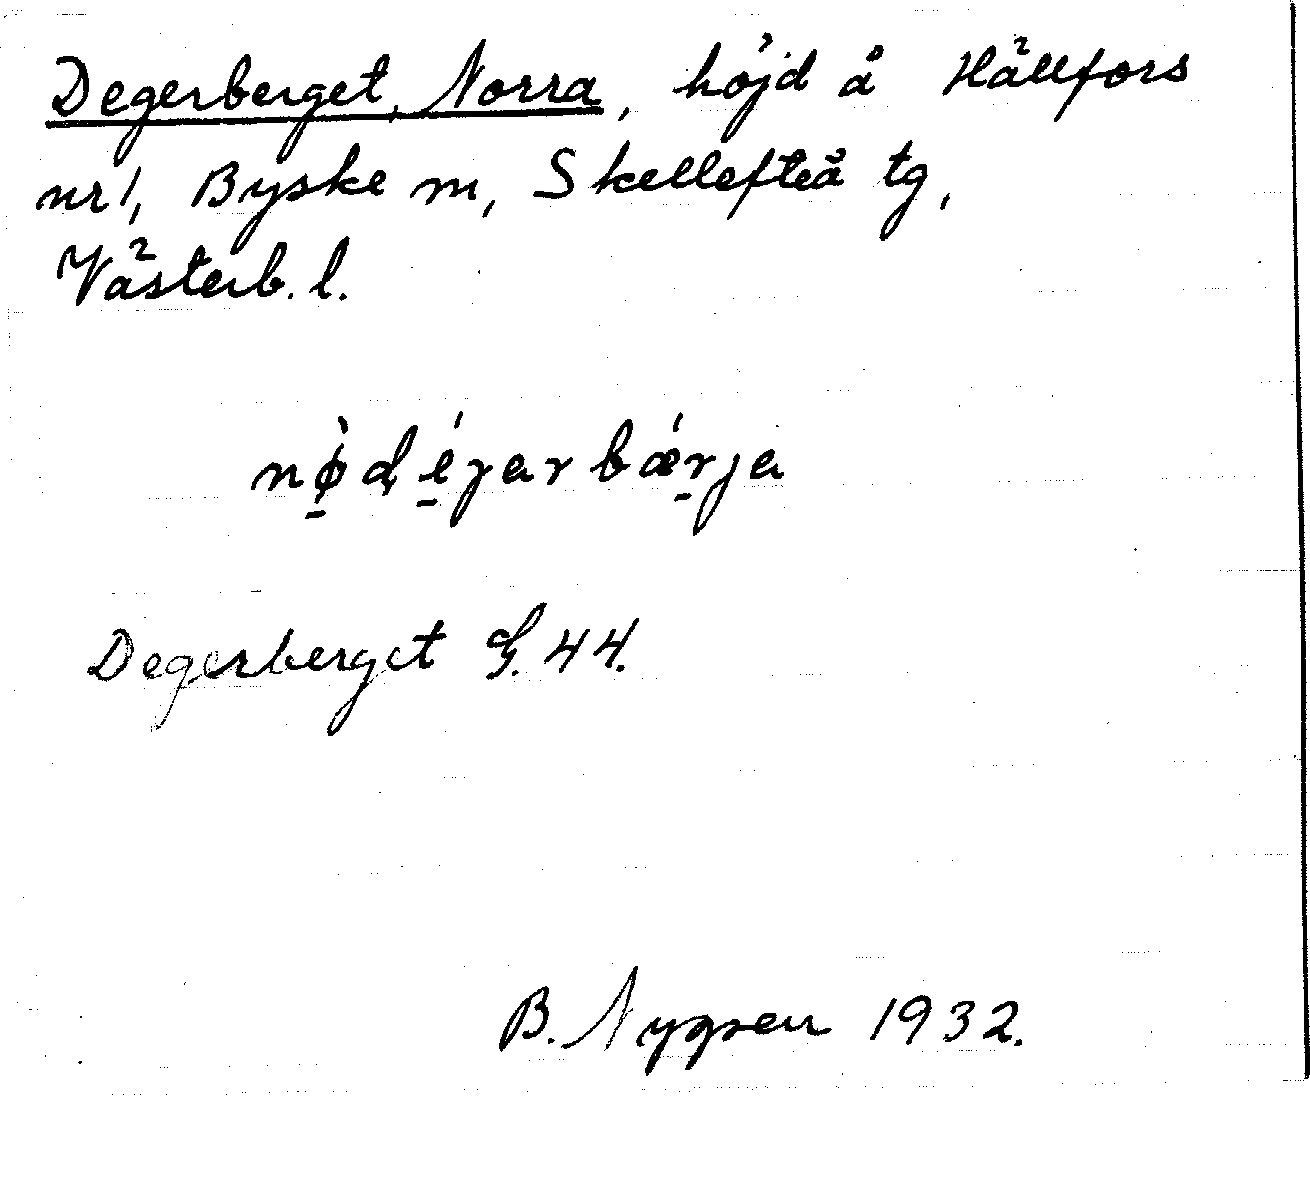 Degerberget, Norra, höjd å Hällfors
nr 1, Byske sn, Skellefteå tg,
Västerb. l.
nø̀ḏé̱garbǽṟja
Degerberget G. 44.
B. 1932.